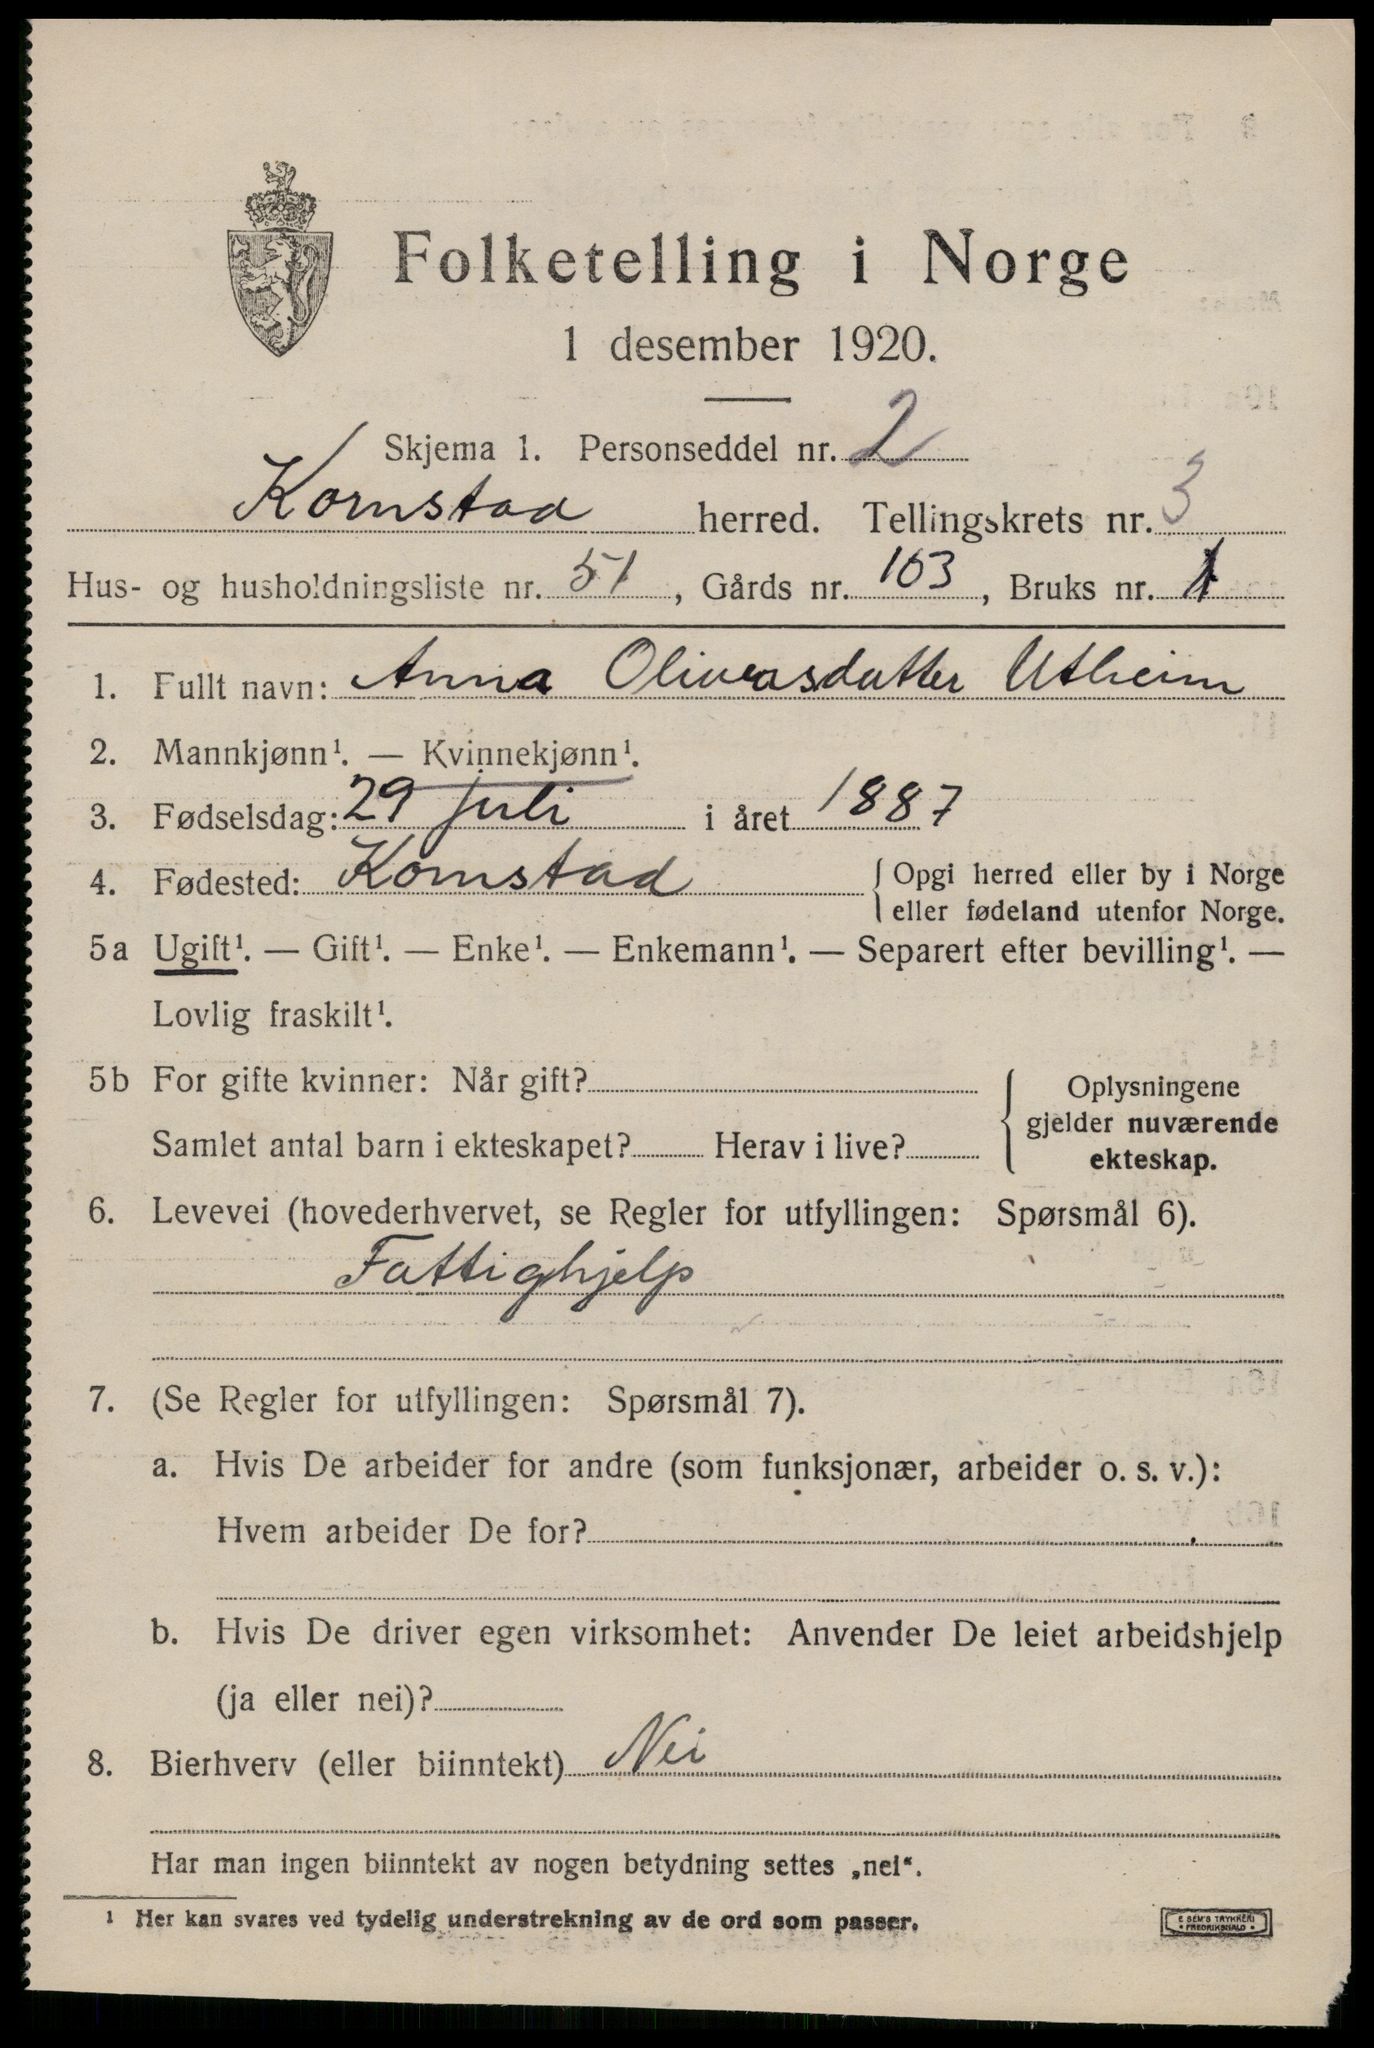 Folketelling i Norge
1 desember 1920.
Skjema 1. Personseddel nr. 2
Kornstad herred. Tellingskrets nr. 3
Hus- og husholdningsliste nr. 51, Gårds nr. 103, Bruks nr. 1
1. Fullt navn: Anna Oliverasdatter Utheim
2. Mannkjønn¹. — Kvinnekjønn¹.
3. Fødselsdag: 29 juli i året 1887
4. Fødested: Kornstad { Opgi herred eller by i Norge
eller fødeland utenfor Norge.
5a Ugift¹. — Gift¹. — Enke¹. — Enkemann¹. — Separert efter bevilling¹. —
Lovlig fraskilt¹.
5b For gifte kvinner: Når gift? { Oplysningene
gjelder nuværende
Samlet antal barn i ekteskapet? Herav i live?
ekteskap.
6. Levevei (hovederhvervet, se Regler for utfyllingen: Spørsmål 6).
Fattighjelp
7. (Se Regler for utfyllingen: Spørsmål 7).
a. Hvis De arbeider for andre (som funksjonær, arbeider o. s. v.):
Hvem arbeider De for?
b. Hvis De driver egen virksomhet: Anvender De leiet arbeidshjelp
(ja eller nei)?
8. Bierhverv (eller biinntekt) Nei
Har man ingen biinntekt av nogen betydning settes „nei“.
¹ Her kan svares ved tydelig understrekning av de ord som passer.
E SEM'S TRYKKERI
• FREDRIKSHALD •